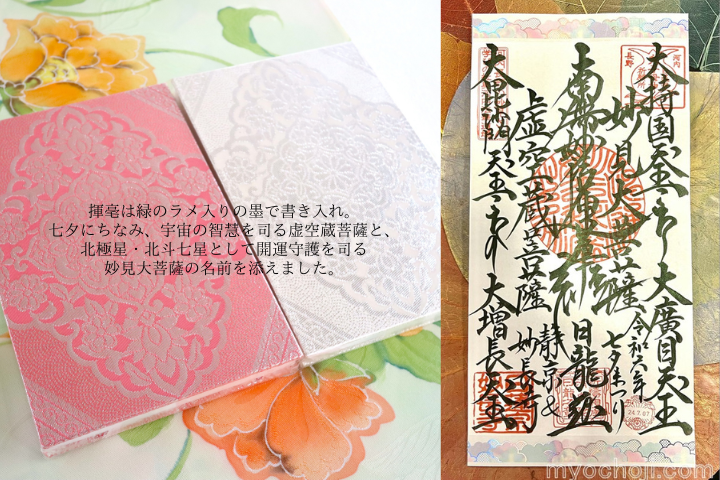 揮毫は緑のラメ入りの墨で書き入れ。
七夕にちなみ、宇宙の智慧を司る虚空蔵菩薩と、
北極星・北斗七星として開運守護を司る
妙見大菩薩の名前を添えました。
大持国天王 大廣目天王
妙見大菩薩
令和六年
七夕まつり
南無妙法蓮華経
日龍
上虚空蔵菩薩
妙長寺
大毘沙門天王 大増長天王
24.7.07
myochoji.com